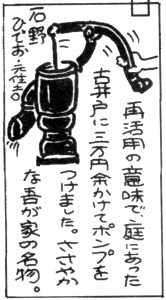 再活用の意味で、庭にあった
古井戸に三万円余かけてポンプを
つけました。ささやか
な吾が家の名物。
石野
ひでお